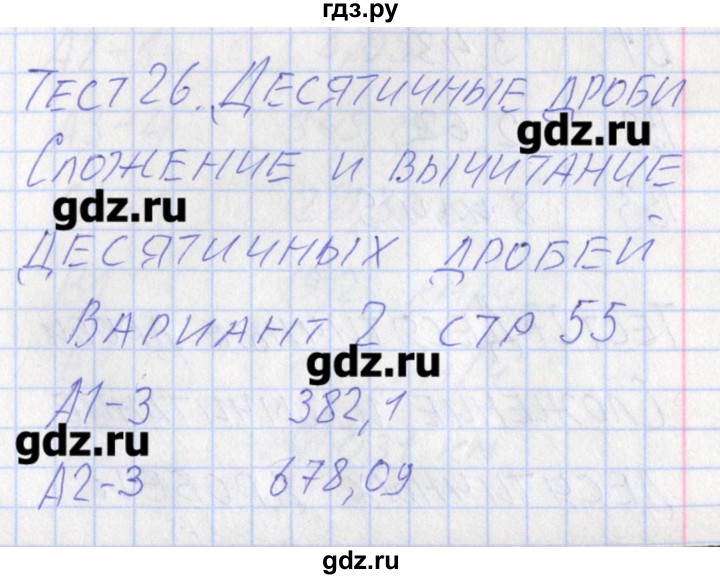 гдз.ру
Тест 26. Десятичные дроби
gdz.ru
Сложение и вычитание
gdz.ru
десятичных дробей
Вариант 2 стр 55
gdz.ru
А1-3 382,1
gdz.ru
А2-3 678,09
gdz.ru